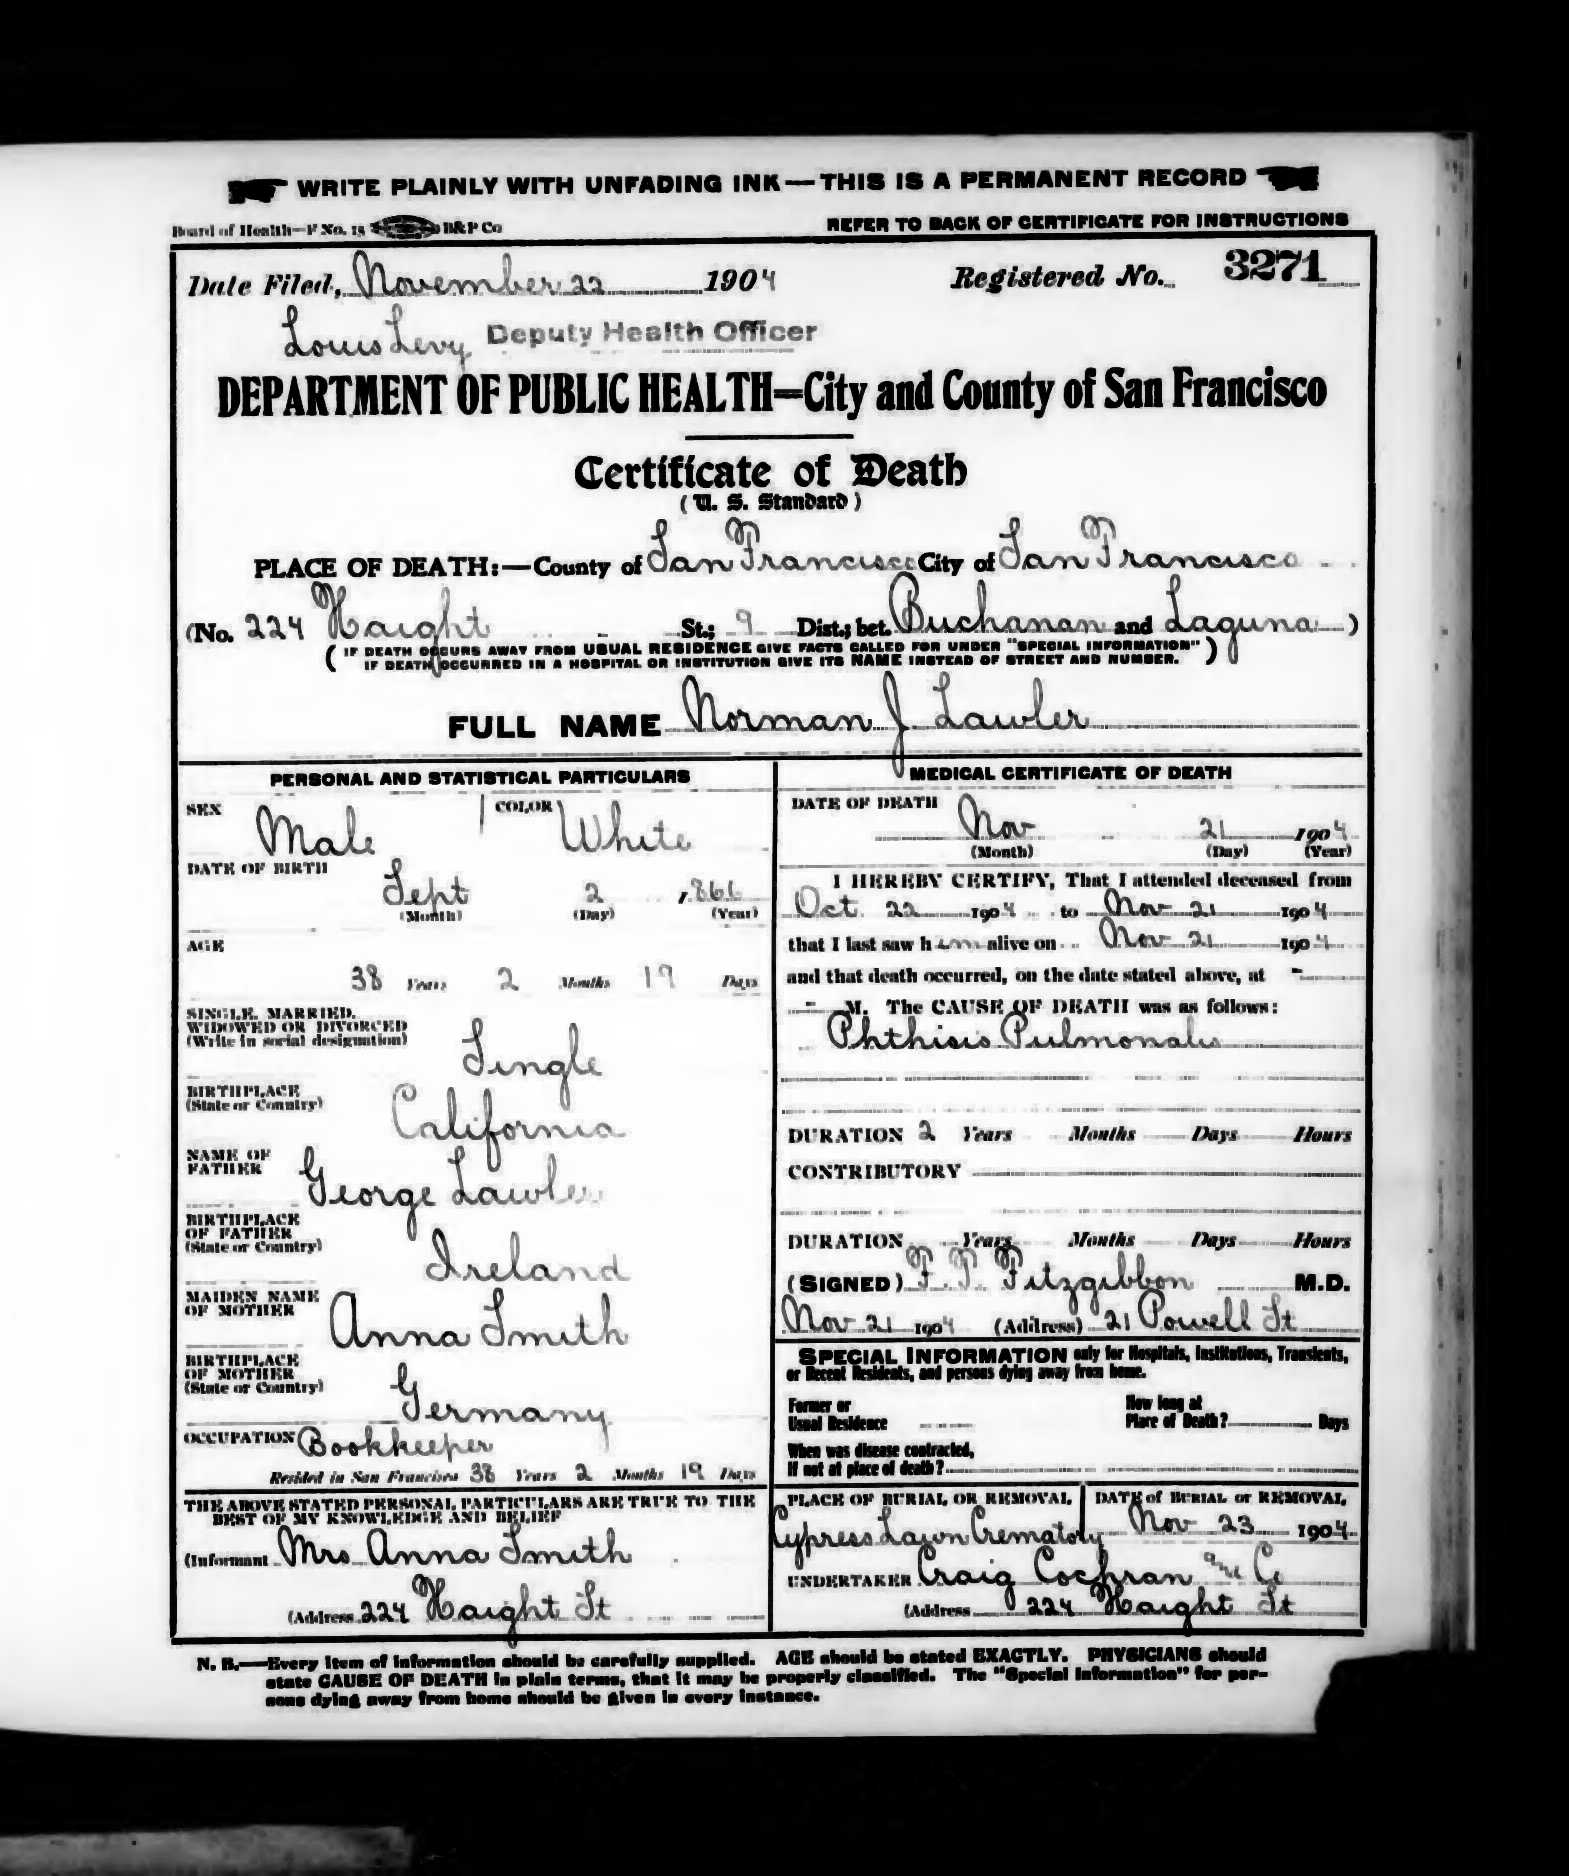 WRITE PLAINLY WITH UNFADING INK—THIS IS A PERMANENT RECORD
Board of Health—F No. 15 B&P Co REFER TO BACK OF CERTIFICATE FOR INSTRUCTIONS
Date Filed, November 22 1904 Registered No. 3271
Louis Levy Deputy Health Officer
DEPARTMENT OF PUBLIC HEALTH=City and County of San Francisco
Certificate of Death
(U. S. Standard)
PLACE OF DEATH:—County of San Francisco City of San Francisco
(No. 224 Haight St.; 9 Dist.; bet. Buchanan and Laguna)
(IF DEATH OCCURS AWAY FROM USUAL RESIDENCE GIVE FACTS CALLED FOR UNDER "SPECIAL INFORMATION"
IF DEATH OCCURRED IN A HOSPITAL OR INSTITUTION GIVE ITS NAME INSTEAD OF STREET AND NUMBER.)
FULL NAME Norman J Lawler
PERSONAL AND STATISTICAL PARTICULARS
SEX Male COLOR White
DATE OF BIRTH
Sept 2 , 866
(Month) (Day) (Year)
AGE
38 Years 2 Months 19 Days
SINGLE, MARRIED,
WIDOWED OR DIVORCED
(Write in social designation) Single
BIRTHPLACE
(State or Country) California
NAME OF
FATHER George Lawler
BIRTHPLACE
OF FATHER
(State or Country) Ireland
MAIDEN NAME
OF MOTHER Anna Smith
BIRTHPLACE
OF MOTHER
(State or Country) Germany
OCCUPATION Bookkeeper
Resided in San Francisco 38 Years 2 Months 19 Days
THE ABOVE STATED PERSONAL PARTICULARS ARE TRUE TO THE
BEST OF MY KNOWLEDGE AND BELIEF
(Informant Mrs Anna Smith
(Address 224 Haight St
MEDICAL CERTIFICATE OF DEATH
DATE OF DEATH
Nov 21 1904
(Month) (Day) (Year)
I HEREBY CERTIFY, That I attended deceased from
Oct 22 1904 to Nov 21 1904
that I last saw him alive on Nov 21 1904
and that death occurred, on the date stated above, at -
- M. The CAUSE OF DEATH was as follows:
Phthisis Pulmonalis
DURATION 2 Years Months Days Hours
CONTRIBUTORY
DURATION Years Months Days Hours
(SIGNED) F. F. Fitzgibbon M.D.
Nov 21 1904 (Address) 21 Powell St
SPECIAL INFORMATION only for Hospitals, Institutions, Transients,
or Recent Residents, and persons dying away from home.
Former or
Usual Residence
How long at
Place of Death? Days
When was disease contracted,
If not at place of death?
PLACE OF BURIAL OR REMOVAL
Cypress Lawn Crematory
DATE of BURIAL or REMOVAL
Nov 23 1904
UNDERTAKER Craig Cochran and Co
(Address 224 Haight St
N. B.—Every item of information should be carefully supplied. AGE should be stated EXACTLY. PHYSICIANS should
state CAUSE OF DEATH in plain terms, that it may be properly classified. The "Special Information" for per-
sons dying away from home should be given in every instance.